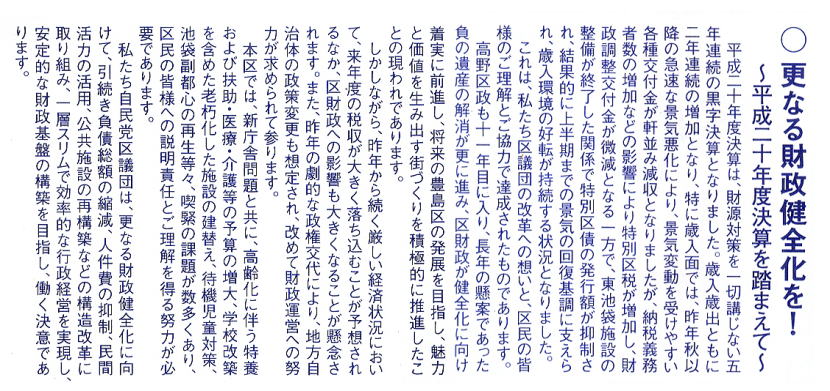 ○ 更なる財政健全化を！
～平成二十年度決算を踏まえて～
平成二十年度決算は、財源対策を一切講じない五
年連続の黒字決算となりました。歳入歳出ともに
二年連続の増加となり、特に歳入面では、昨年秋以
降の急速な景気悪化により、景気変動を受けやすい
各種交付金が軒並み減収となりましたが、納税義務
者数の増加などの影響により特別区税が増加し、財
政調整交付金が微減となる一方で、東池袋施設の
整備が終了した関係で特別区債の発行額が抑制さ
れ、結果的に上半期までの景気の回復基調に支えら
れ、歳入環境の好転が持続する状況となりました。
これは、私たち区議団の改革への想いと、区民の皆
様のご理解とご協力で達成されたものであります。
高野区政も十一年目に入り、長年の懸案であった
負の遺産の解消が更に進み、区財政が健全化に向け
着実に前進し、将来の豊島区の発展を目指し、魅力
と価値を生み出す街づくりを積極的に推進したこ
との現われであります。
しかしながら、昨年から続く厳しい経済状況におい
て、来年度の税収が大きく落ち込むことが予想され
るなか、区財政への影響も大きくなることが懸念さ
れます。また、昨年の劇的な政権交代により、地方自
治体の政策変更も想定され、改めて財政運営への努
力が求められて参ります。
本区では、新庁舎問題と共に、高齢化に伴う特養
および扶助・医療・介護等の予算の増大、学校改築
を含めた老朽化した施設の建替え、待機児童対策、
池袋副都心の再生等々、喫緊の課題が数多くあり、
区民の皆様への説明責任とご理解を得る努力が必
要であります。
私たち自民党区議団は、更なる財政健全化に向
けて、引続き負債総額の縮減、人件費の抑制、民間
活力の活用、公共施設の再構築などの構造改革に
取り組み、一層スリムで効率的な行政経営を実現し、
安定的な財政基盤の構築を目指し、働く決意であ
ります。